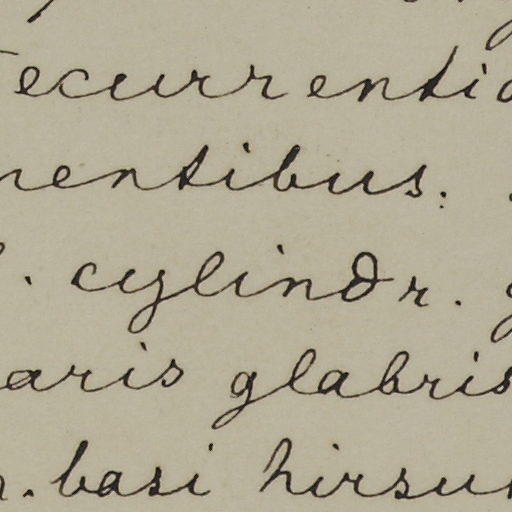 ecurrentia
nentibus.
. cylindr.
aris glabris
. basi hirsu